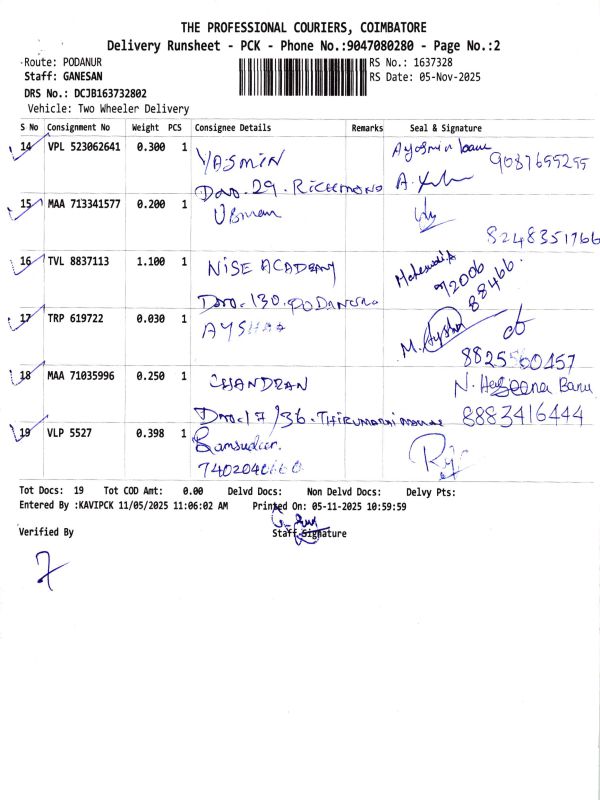 THE PROFESSIONAL COURIERS, COIMBATORE
Delivery Runsheet - PCK - Phone No.:9047080280 - Page No.:2
Route: PODANUR
RS No.: 1637328
Staff: GANESAN
RS Date: 05-Nov-2025
DRS No.: DCJB163732802
Vehicle: Two Wheeler Delivery
S No Consignment No Weight PCS Consignee Details Remarks Seal & Signature
14 VPL 523062641 0.300 1 YASMIN
9087695295
29. RICHMOND
15 MAA 713341577 0.200 1
8248351766
16 TVL 8837113 1.100 1 NISE ACADEMY
72006
88466
130. PODANUR
17 TRP 619722 0.030 1 AYSHAA M. Aysha
8825560457
18 MAA 71035996 0.250 1 CHANDRAN N. Haseena Banu
17/36. 8883416444
19 VLP 5527 0.398 1
7402040660
Tot Docs: 19 Tot COD Amt: 0.00 Delvd Docs: Non Delvd Docs: Delvy Pts:
Entered By :KAVIPCK 11/05/2025 11:06:02 AM Printed On: 05-11-2025 10:59:59
Verified By Staff Signature